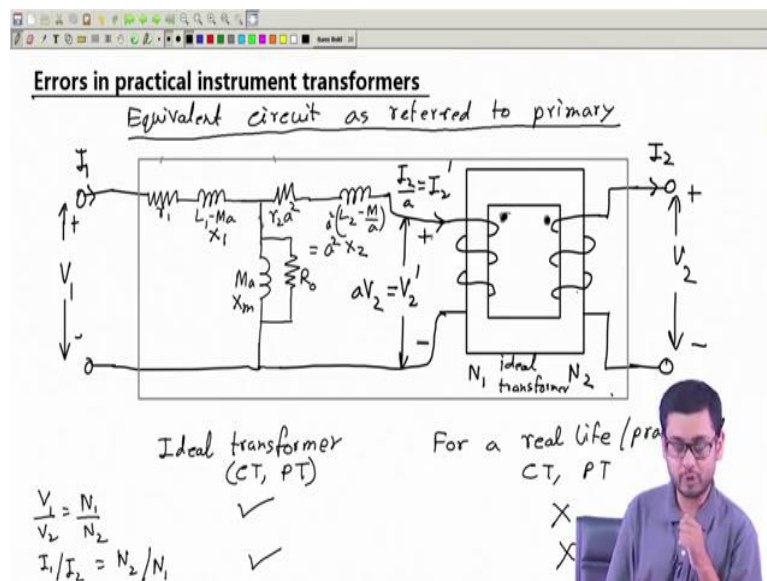 Sans Bold 10
Errors in practical instrument transformers
Equivalent circuit as referred to primary
I₁
I₂/a = I₂'
I₂
r₁
L₁-Ma
X₁
r₂a²
a²(L₂-M/a)
= a² X₂
+
+
+
V₁
Ma
Xₘ
R₀
aV₂ = V₂'
V₂
-
-
-
N₁
ideal
transformer
N₂
Ideal transformer
(CT, PT)
For a real life/pra
CT, PT
V₁/V₂ = N₁/N₂
✓
X
I₁/I₂ = N₂/N₁
✓
X